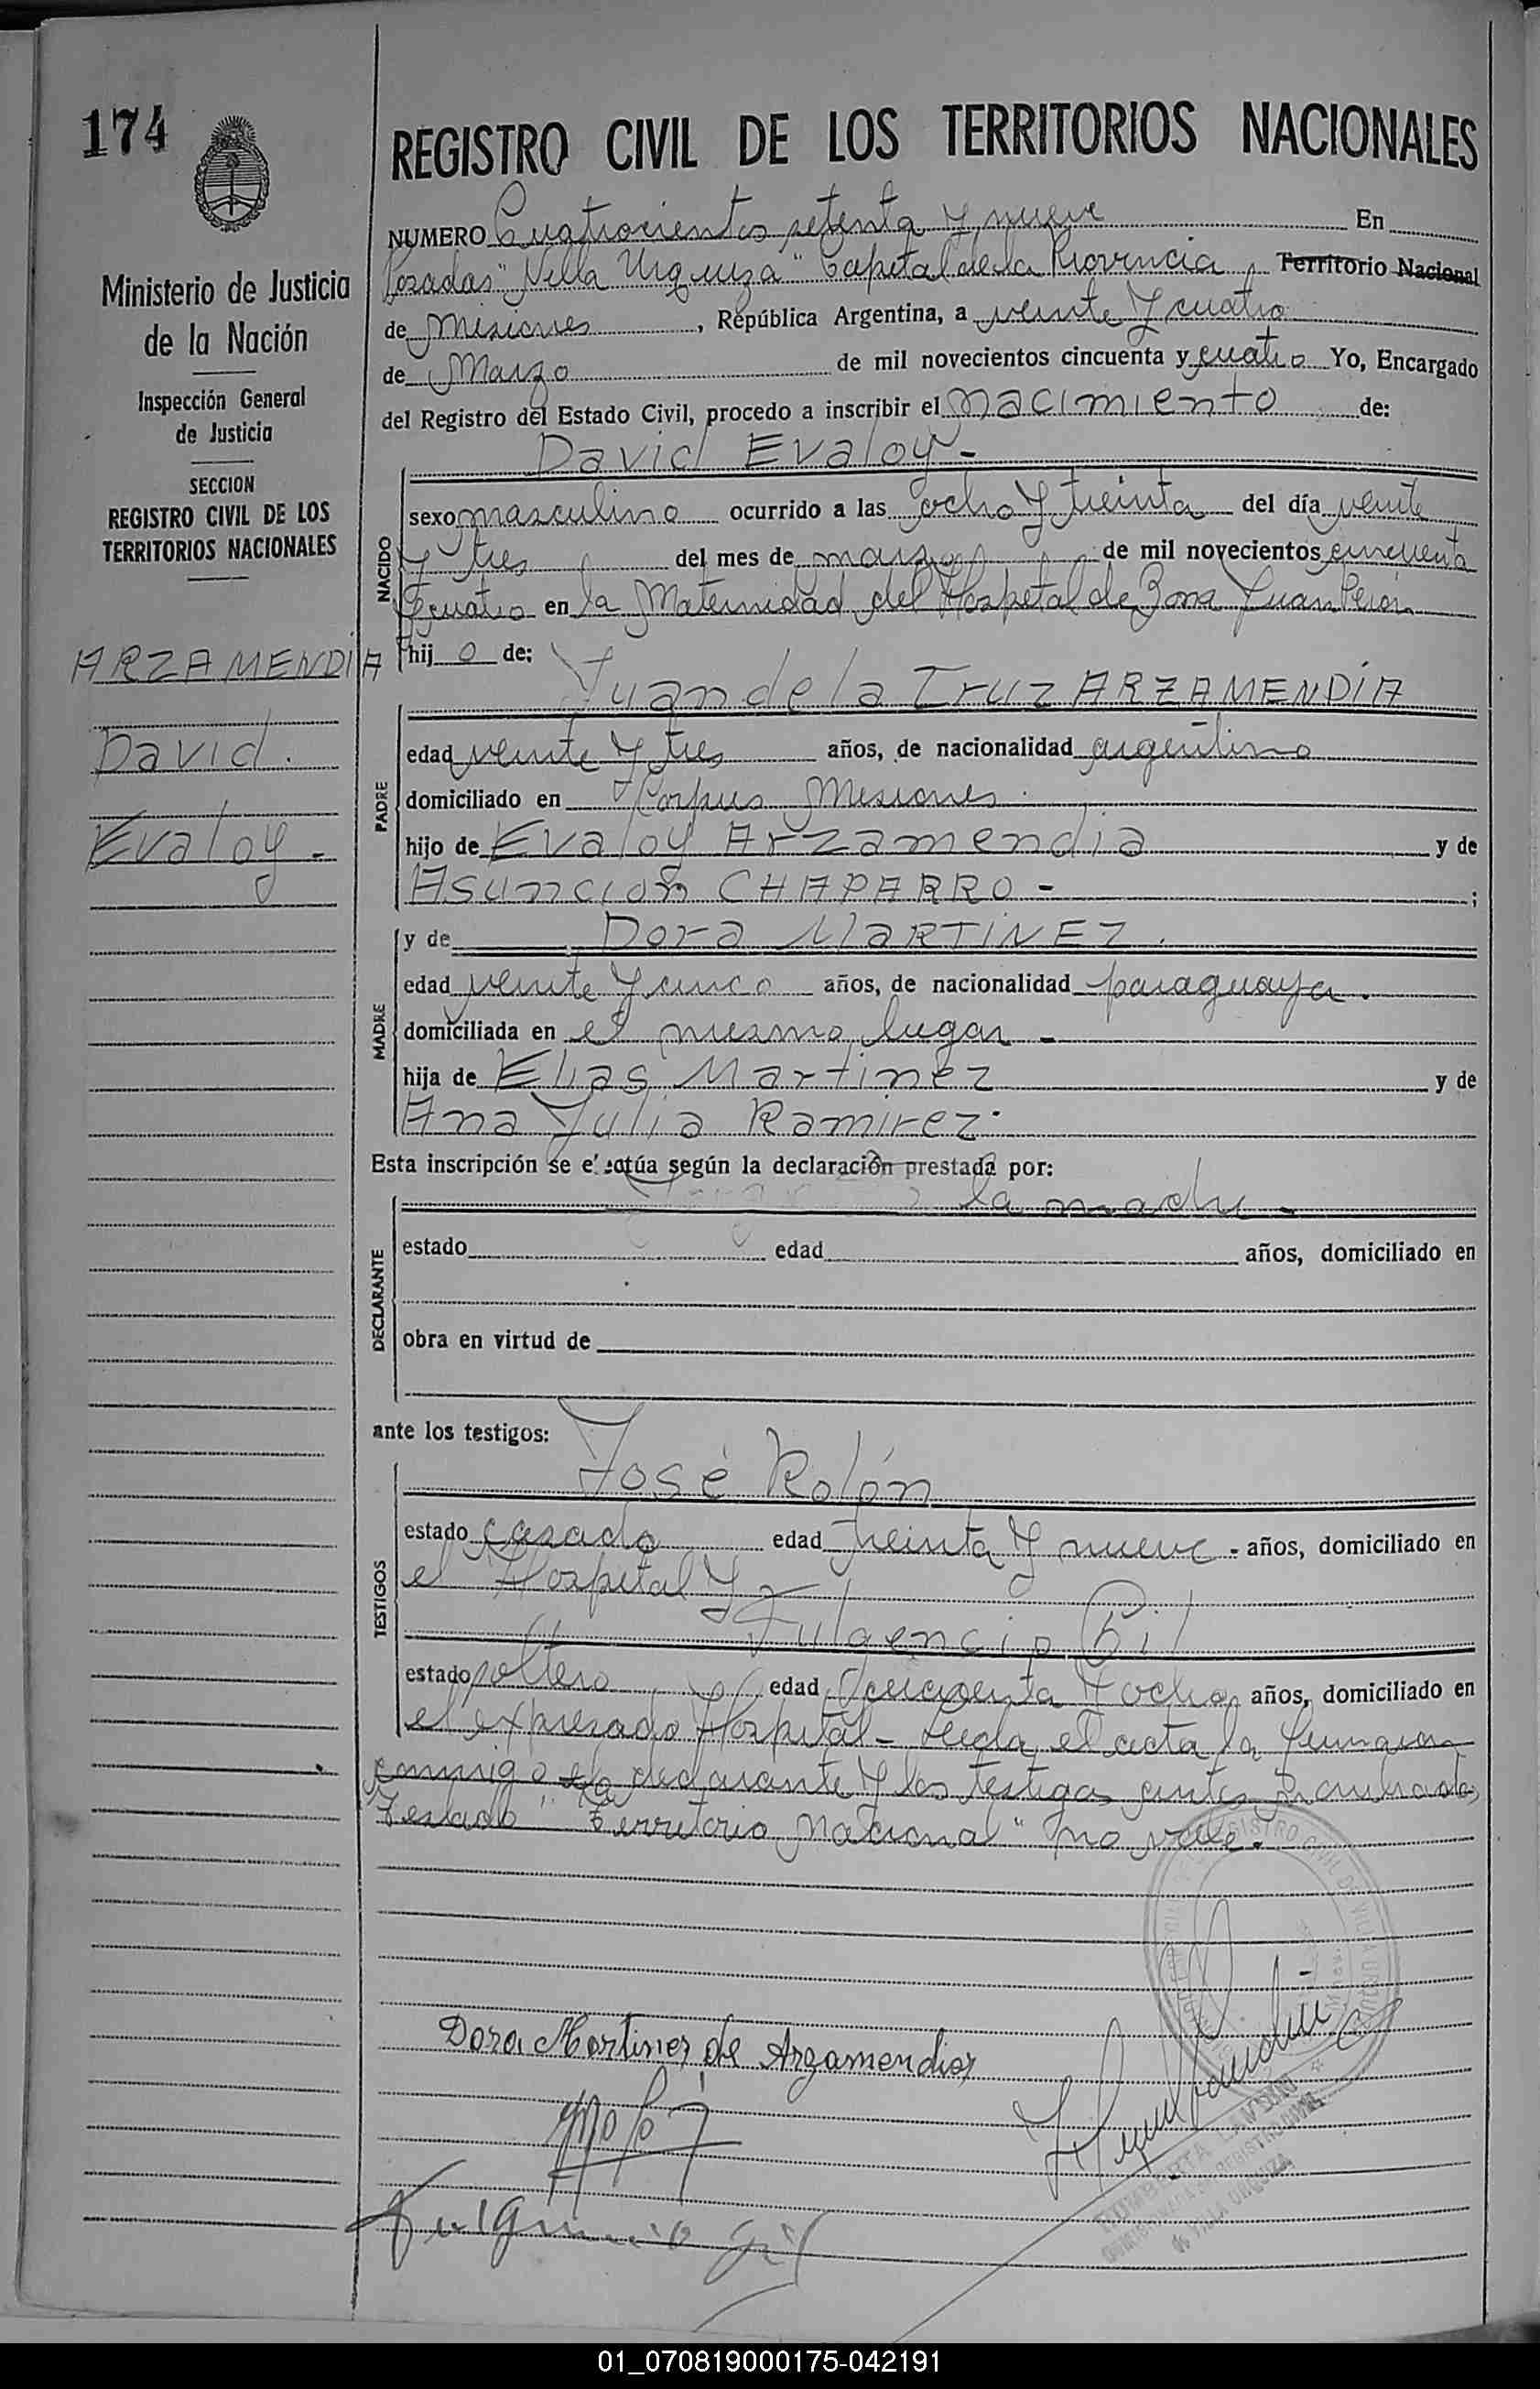 174
REGISTRO CIVIL DE LOS TERRITORIOS NACIONALES
Ministerio de Justicia
de la Nación
Inspección General
de Justicia
SECCION
REGISTRO CIVIL DE LOS
TERRITORIOS NACIONALES
ARZAMENDIA
David.
Evaloy -
NUMERO Cuatrocientos setenta y nueve En
Posadas "Villa Urquiza" Capital de la Provincia Territorio Nacional
de Misiones, República Argentina, a veinte y cuatro
de Marzo de mil novecientos cincuenta y cuatro Yo, Encargado
del Registro del Estado Civil, procedo a inscribir el nacimiento de:
David Evaloy -
NACIDO
sexo masculino ocurrido a las ocho y treinta del día veinte
y tres del mes de marzo de mil novecientos cincuenta
y cuatro en la Maternidad del Hospital de Zona Juan Perón
hijo de:
Juan de la Cruz ARZAMENDÍA
PADRE
edad veinte y tres años, de nacionalidad argentino
domiciliado en Corpus Misiones.
hijo de Evaloy Arzamendia y de
Asunción CHAPARRO - ;
y de Dora MARTINEZ.
MADRE
edad veinte y cinco años, de nacionalidad paraguaya.
domiciliada en el mismo lugar -
hija de Elias Martinez y de
Ana Julia Ramirez.
Esta inscripción se efectúa según la declaración prestada por:
la madre -
DECLARANTE
estado edad años, domiciliado en
obra en virtud de
ante los testigos:
José Rolón
TESTIGOS
estado casado edad treinta y nueve - años, domiciliado en
el Hospital y
Fulgencio Gil
estado soltero edad cincuenta y ocho años, domiciliado en
el expresado Hospital - Leida el acta la firman
conmigo la declarante y los testigos antes nombrados
Testado "Territorio Nacional" no vale.
REGISTRO CIVIL DE VILLA URQUIZA
Dora Martinez de Arzamendia
Fulgencio Gil
VILLA URQUIZA
01_070819000175-042191